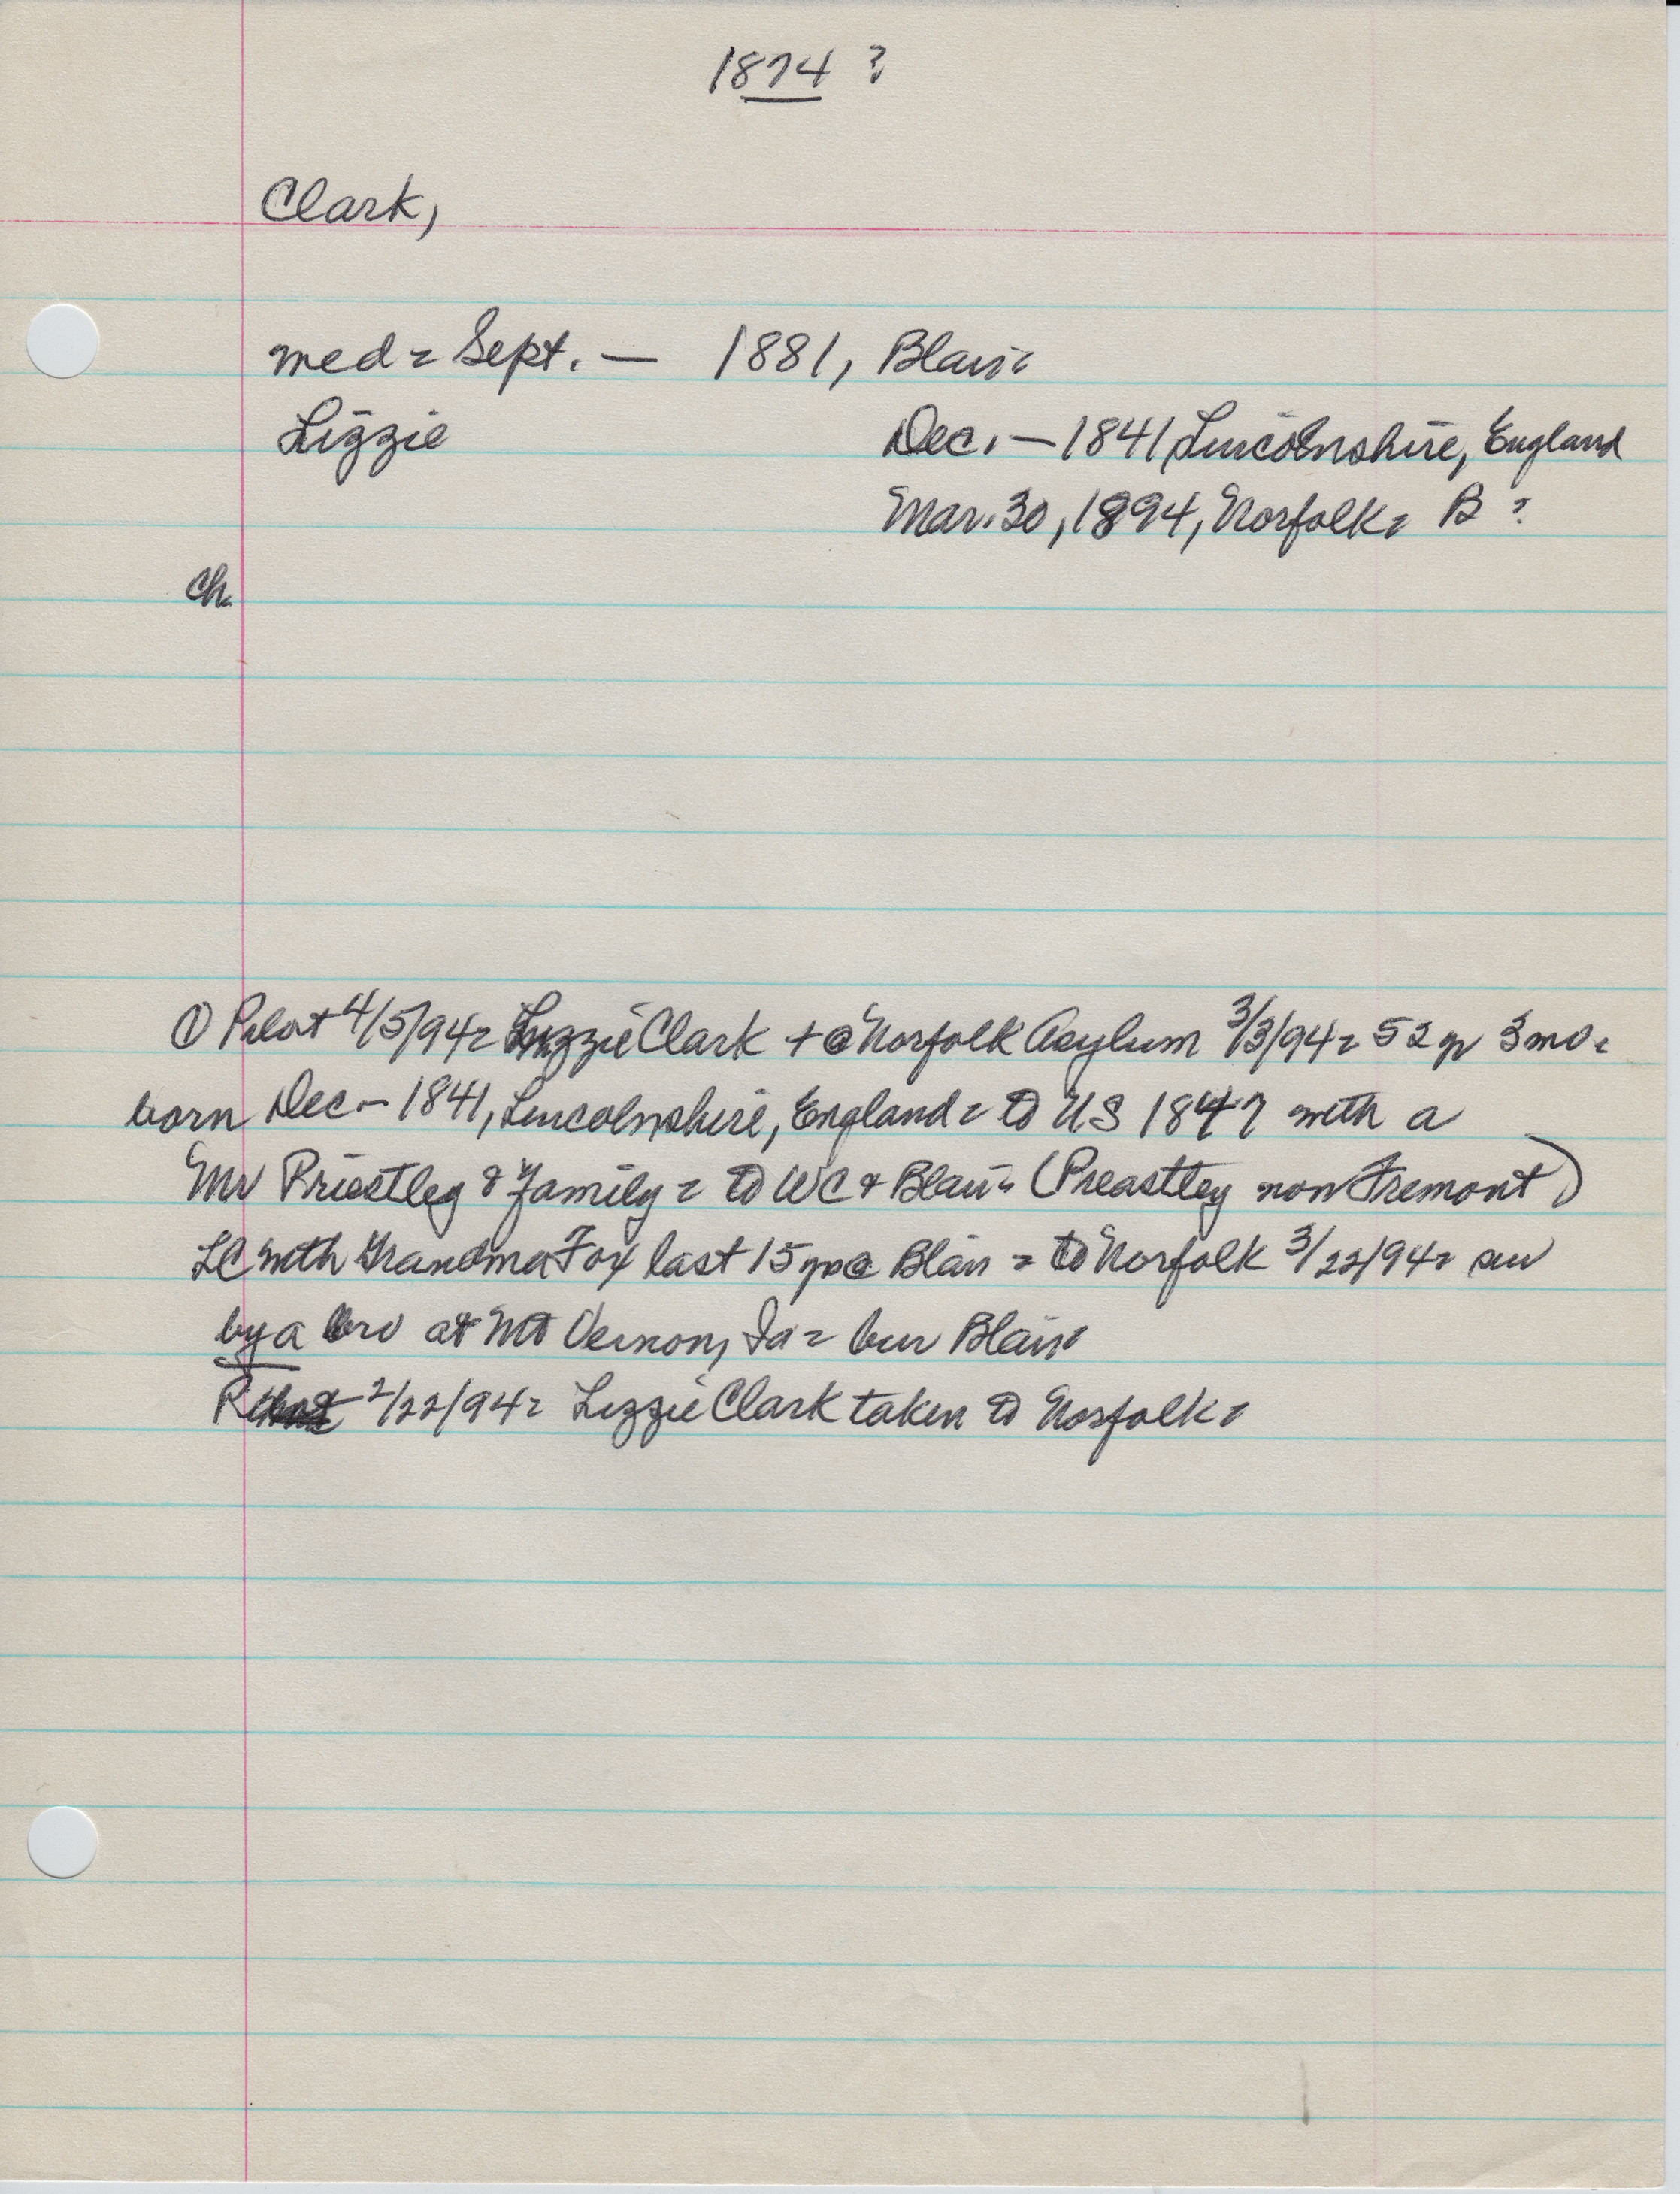 1874 ?
Clark,
med = Sept. — 1881, Blair =
Lizzie Dec. — 1841, Lincolnshire, England
Mar. 30, 1894, Norfolk = B ?
ch.
① Pilot 4/5/94 = Lizzie Clark + @ Norfolk Asylum 3/3/94 = 52 yr 3 mo =
born Dec — 1841, Lincolnshire, England = to US 1847 with a
Mr Priestley & Family = to WC & Blair = (Preastley now Fremont)
LC with Grandma Fox last 15 yrs @ Blair = to Norfolk 3/22/94 = sur
by a bro at Mt Vernon, Ia = bur Blair =
2/22/94 = Lizzie Clark taken to Norfolk =